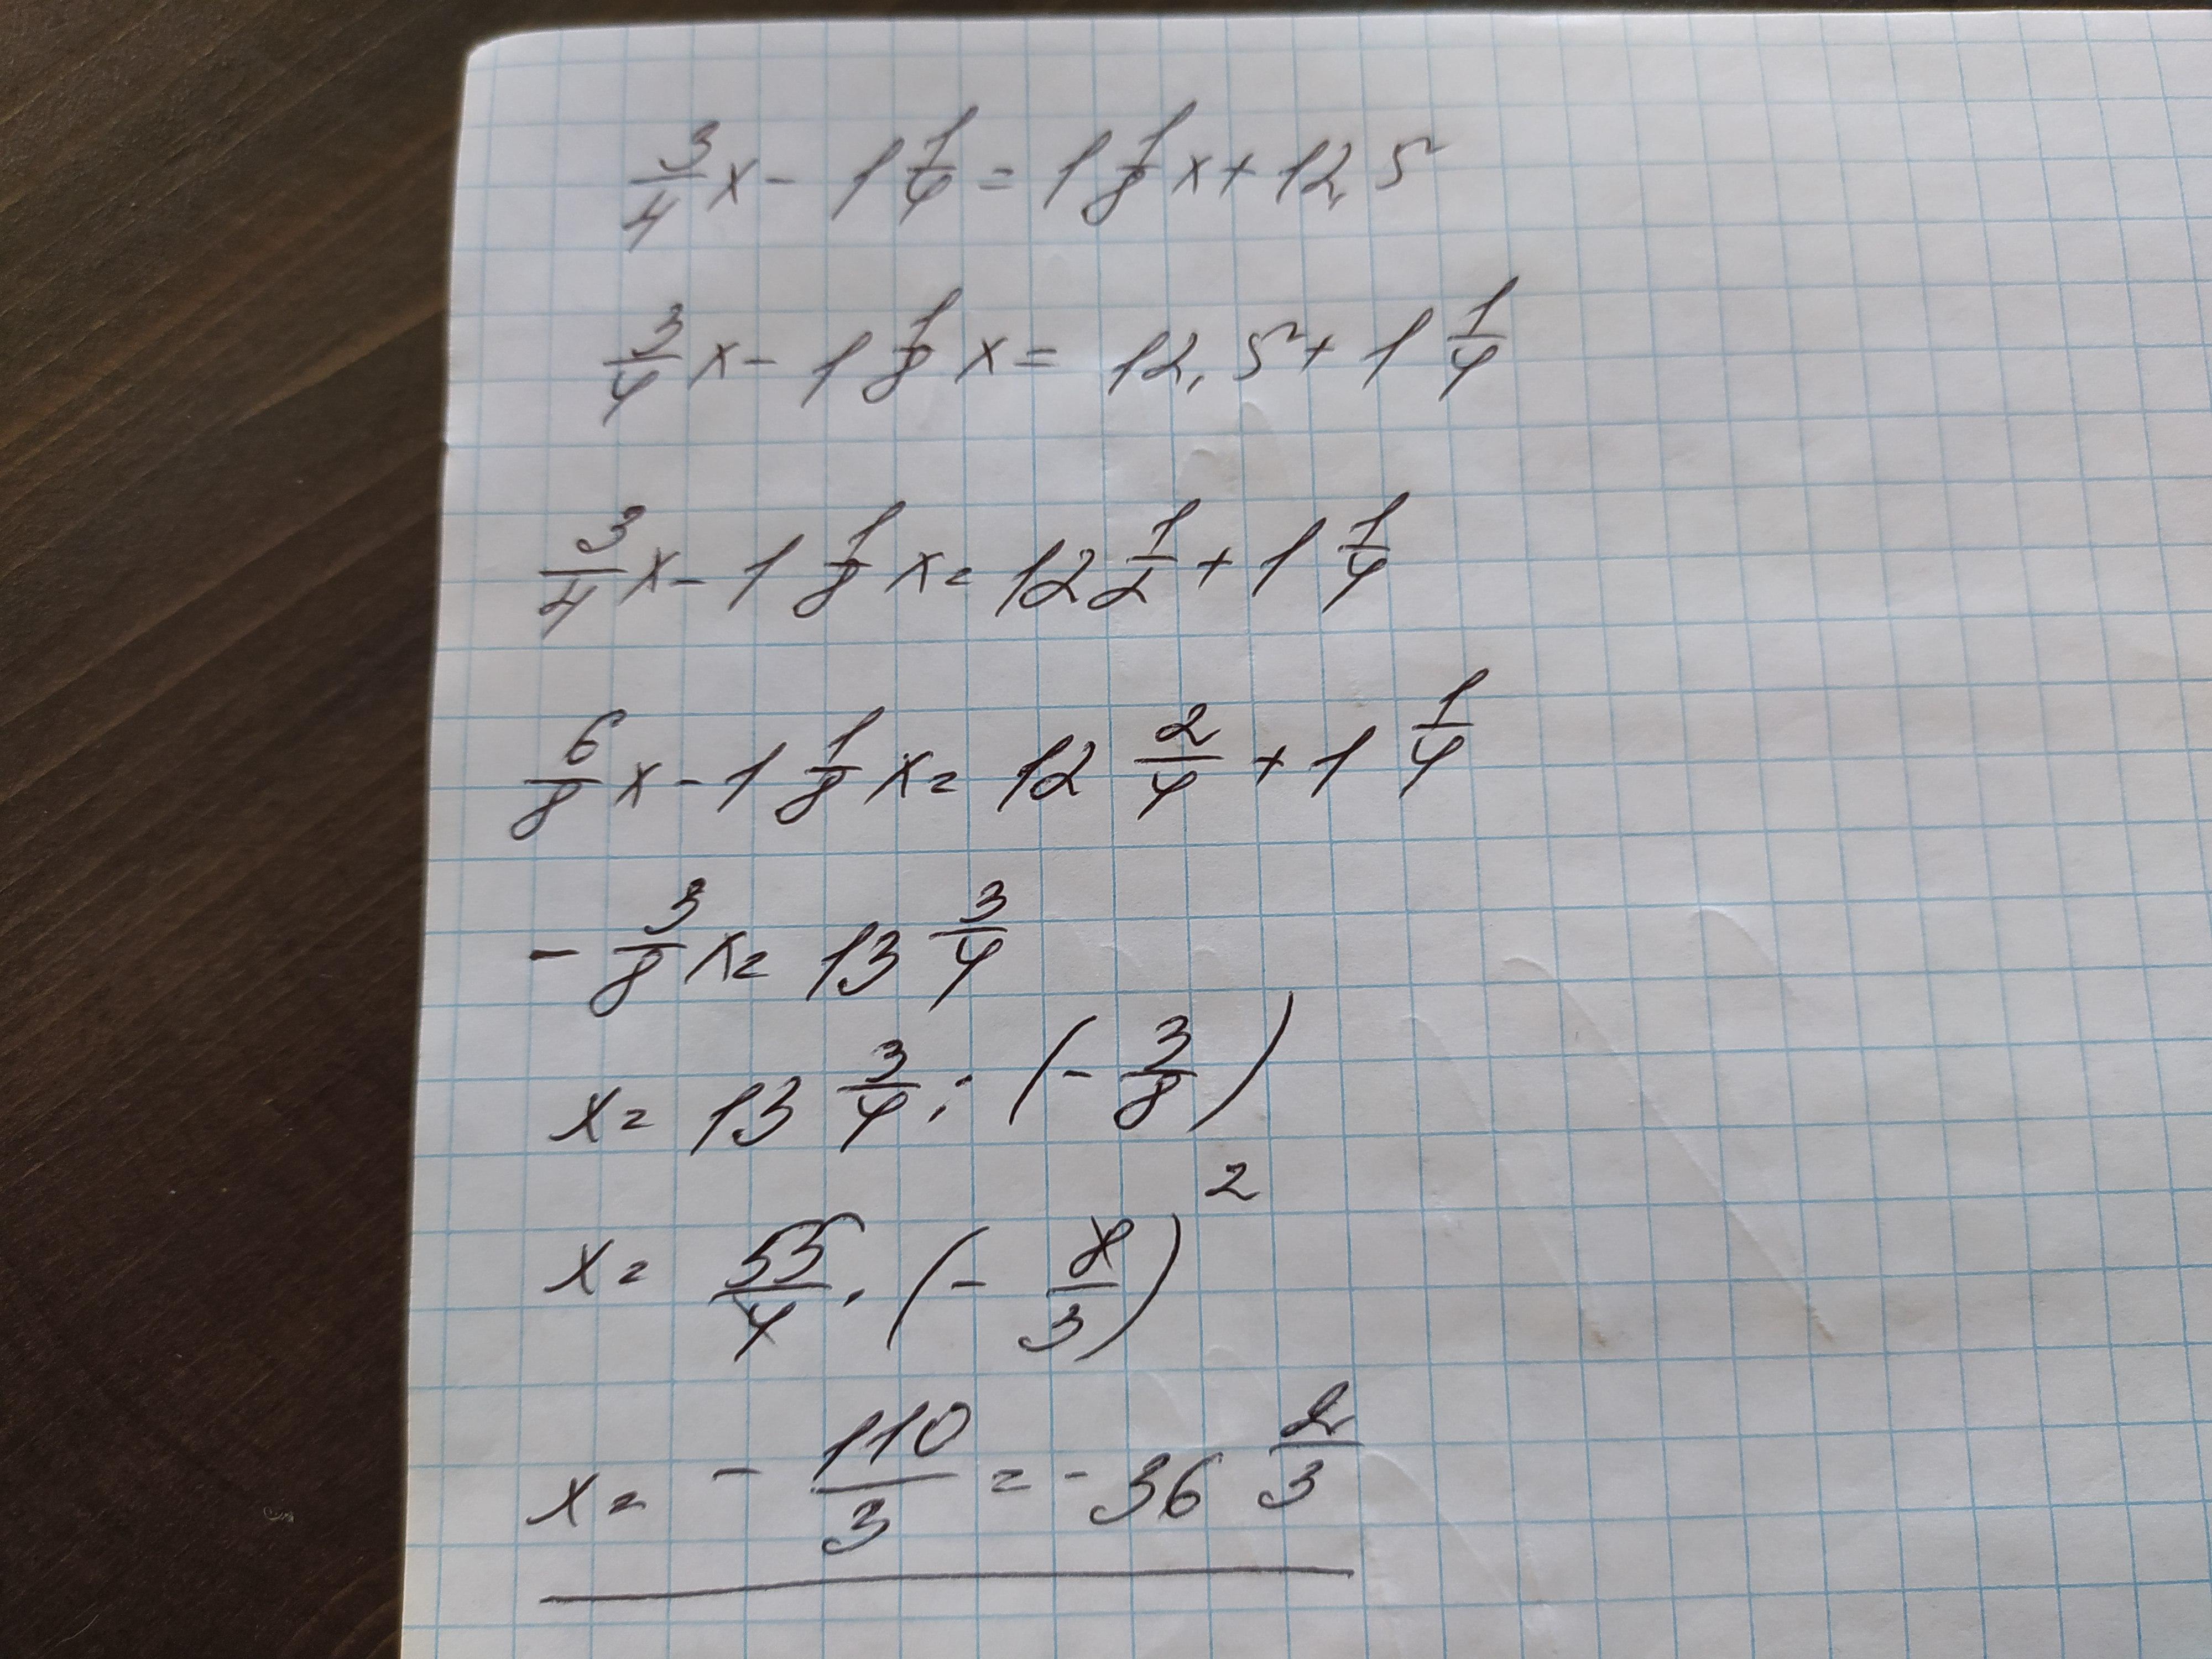 3/4 x - 1 1/4 = 1 1/8 x + 12,5
3/4 x - 1 1/8 x = 12,5 + 1 1/4
3/4 x - 1 1/8 x = 12 1/2 + 1 1/4
6/8 x - 1 1/8 x = 12 2/4 + 1 1/4
- 3/8 x = 13 3/4
x = 13 3/4 : (- 3/8)
2
x = 55/4 · (- 8/3)
x = - 110/3 = - 36 2/3